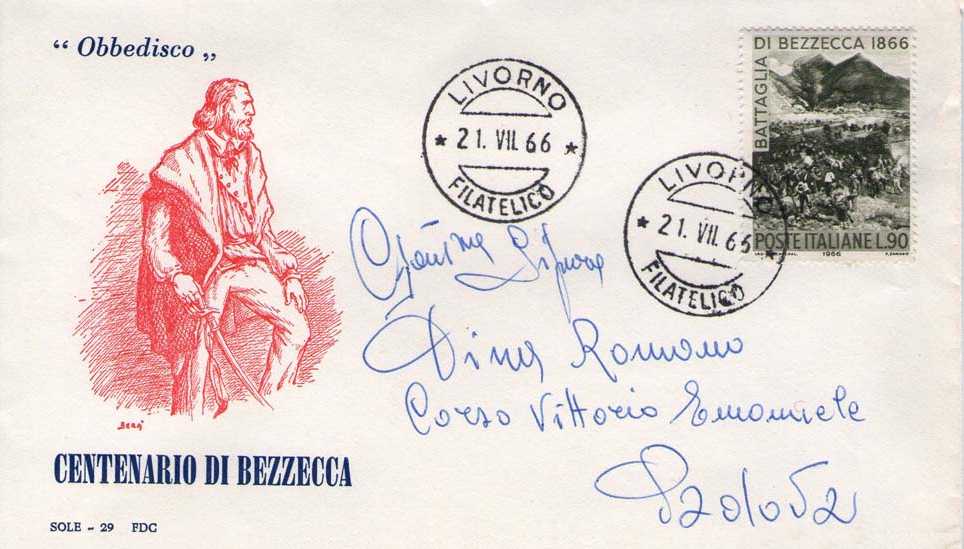 “ Obbedisco „
LIVORNO
* 21. VII. 66 *
FILATELICO
BATTAGLIA
DI BEZZECCA 1866
POSTE ITALIANE L.90
1966
LIVORNO
* 21. VII. 66 *
FILATELICO
Signora
Dina Romano
Corso Vittorio Emanuele
Padova
CENTENARIO DI BEZZECCA
SOLE - 29 FDC